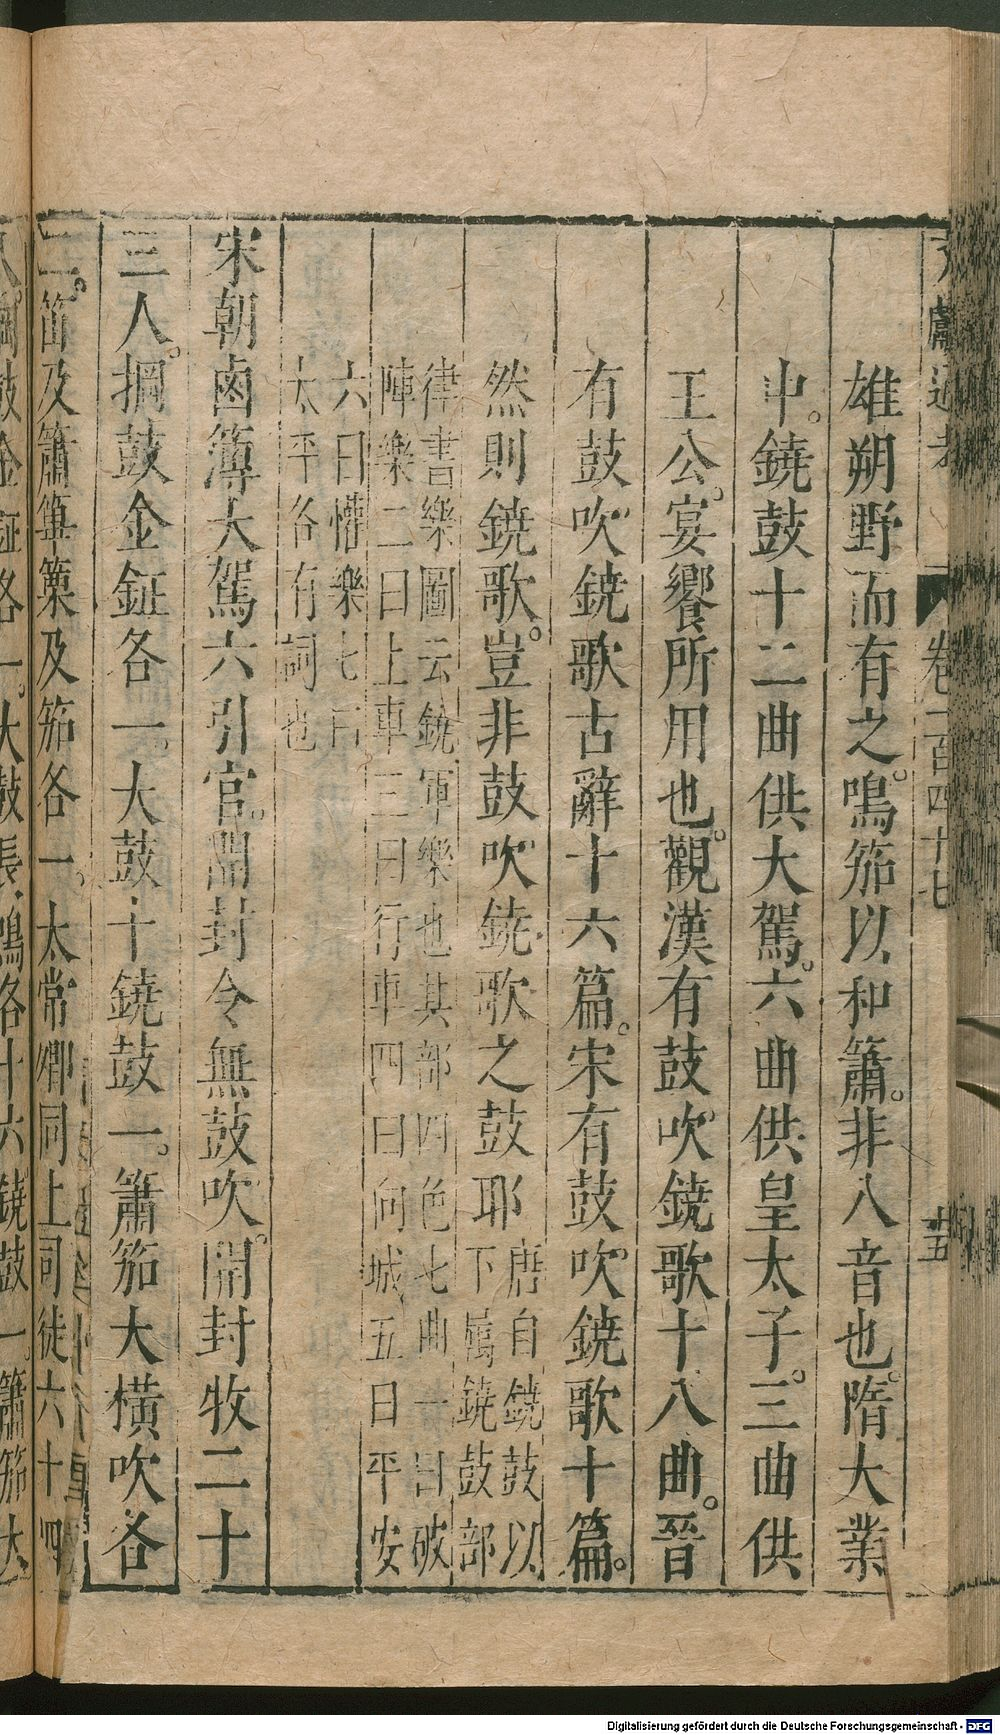 卷一百四十七
十五
雄朔野而有之。鳴笳以和簫。非八音也。隋大業
中。鐃鼓十二曲供大駕。六曲供皇太子。三曲供
王公。宴饗所用也。觀漢有鼓吹鐃歌十八曲。晉
有鼓吹鐃歌古辭十六篇。宋有鼓吹鐃歌十篇。
然則鐃歌。豈非鼓吹鐃歌之鼓耶
唐自鐃鼓以
下屬鐃鼓部
律書樂圖云鐃軍樂也其部四色七曲一曰破
陣樂二曰上車三曰行車四曰向城五曰平安
六曰懽樂七曰
太平各有詞也
宋朝鹵簿大駕六引官。開封令無鼓吹。開封牧二十
三人。掆鼓金鉦各一。大鼓十鐃鼓一。簫笳大橫吹各
二。笛及簫篳篥及笳各一。太常卿同上司徒六十四
鼓金鉦各一。大鼓長鳴各十六鐃鼓一。簫笳大
Digitalisierung gefördert durch die Deutsche Forschungsgemeinschaft - DFG